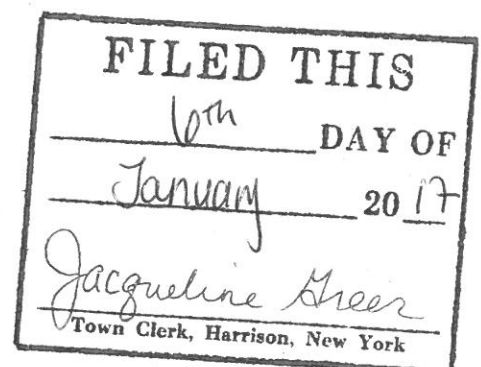 FILED THIS
6th DAY OF
January 2017
Jacqueline Greer
Town Clerk, Harrison, New York